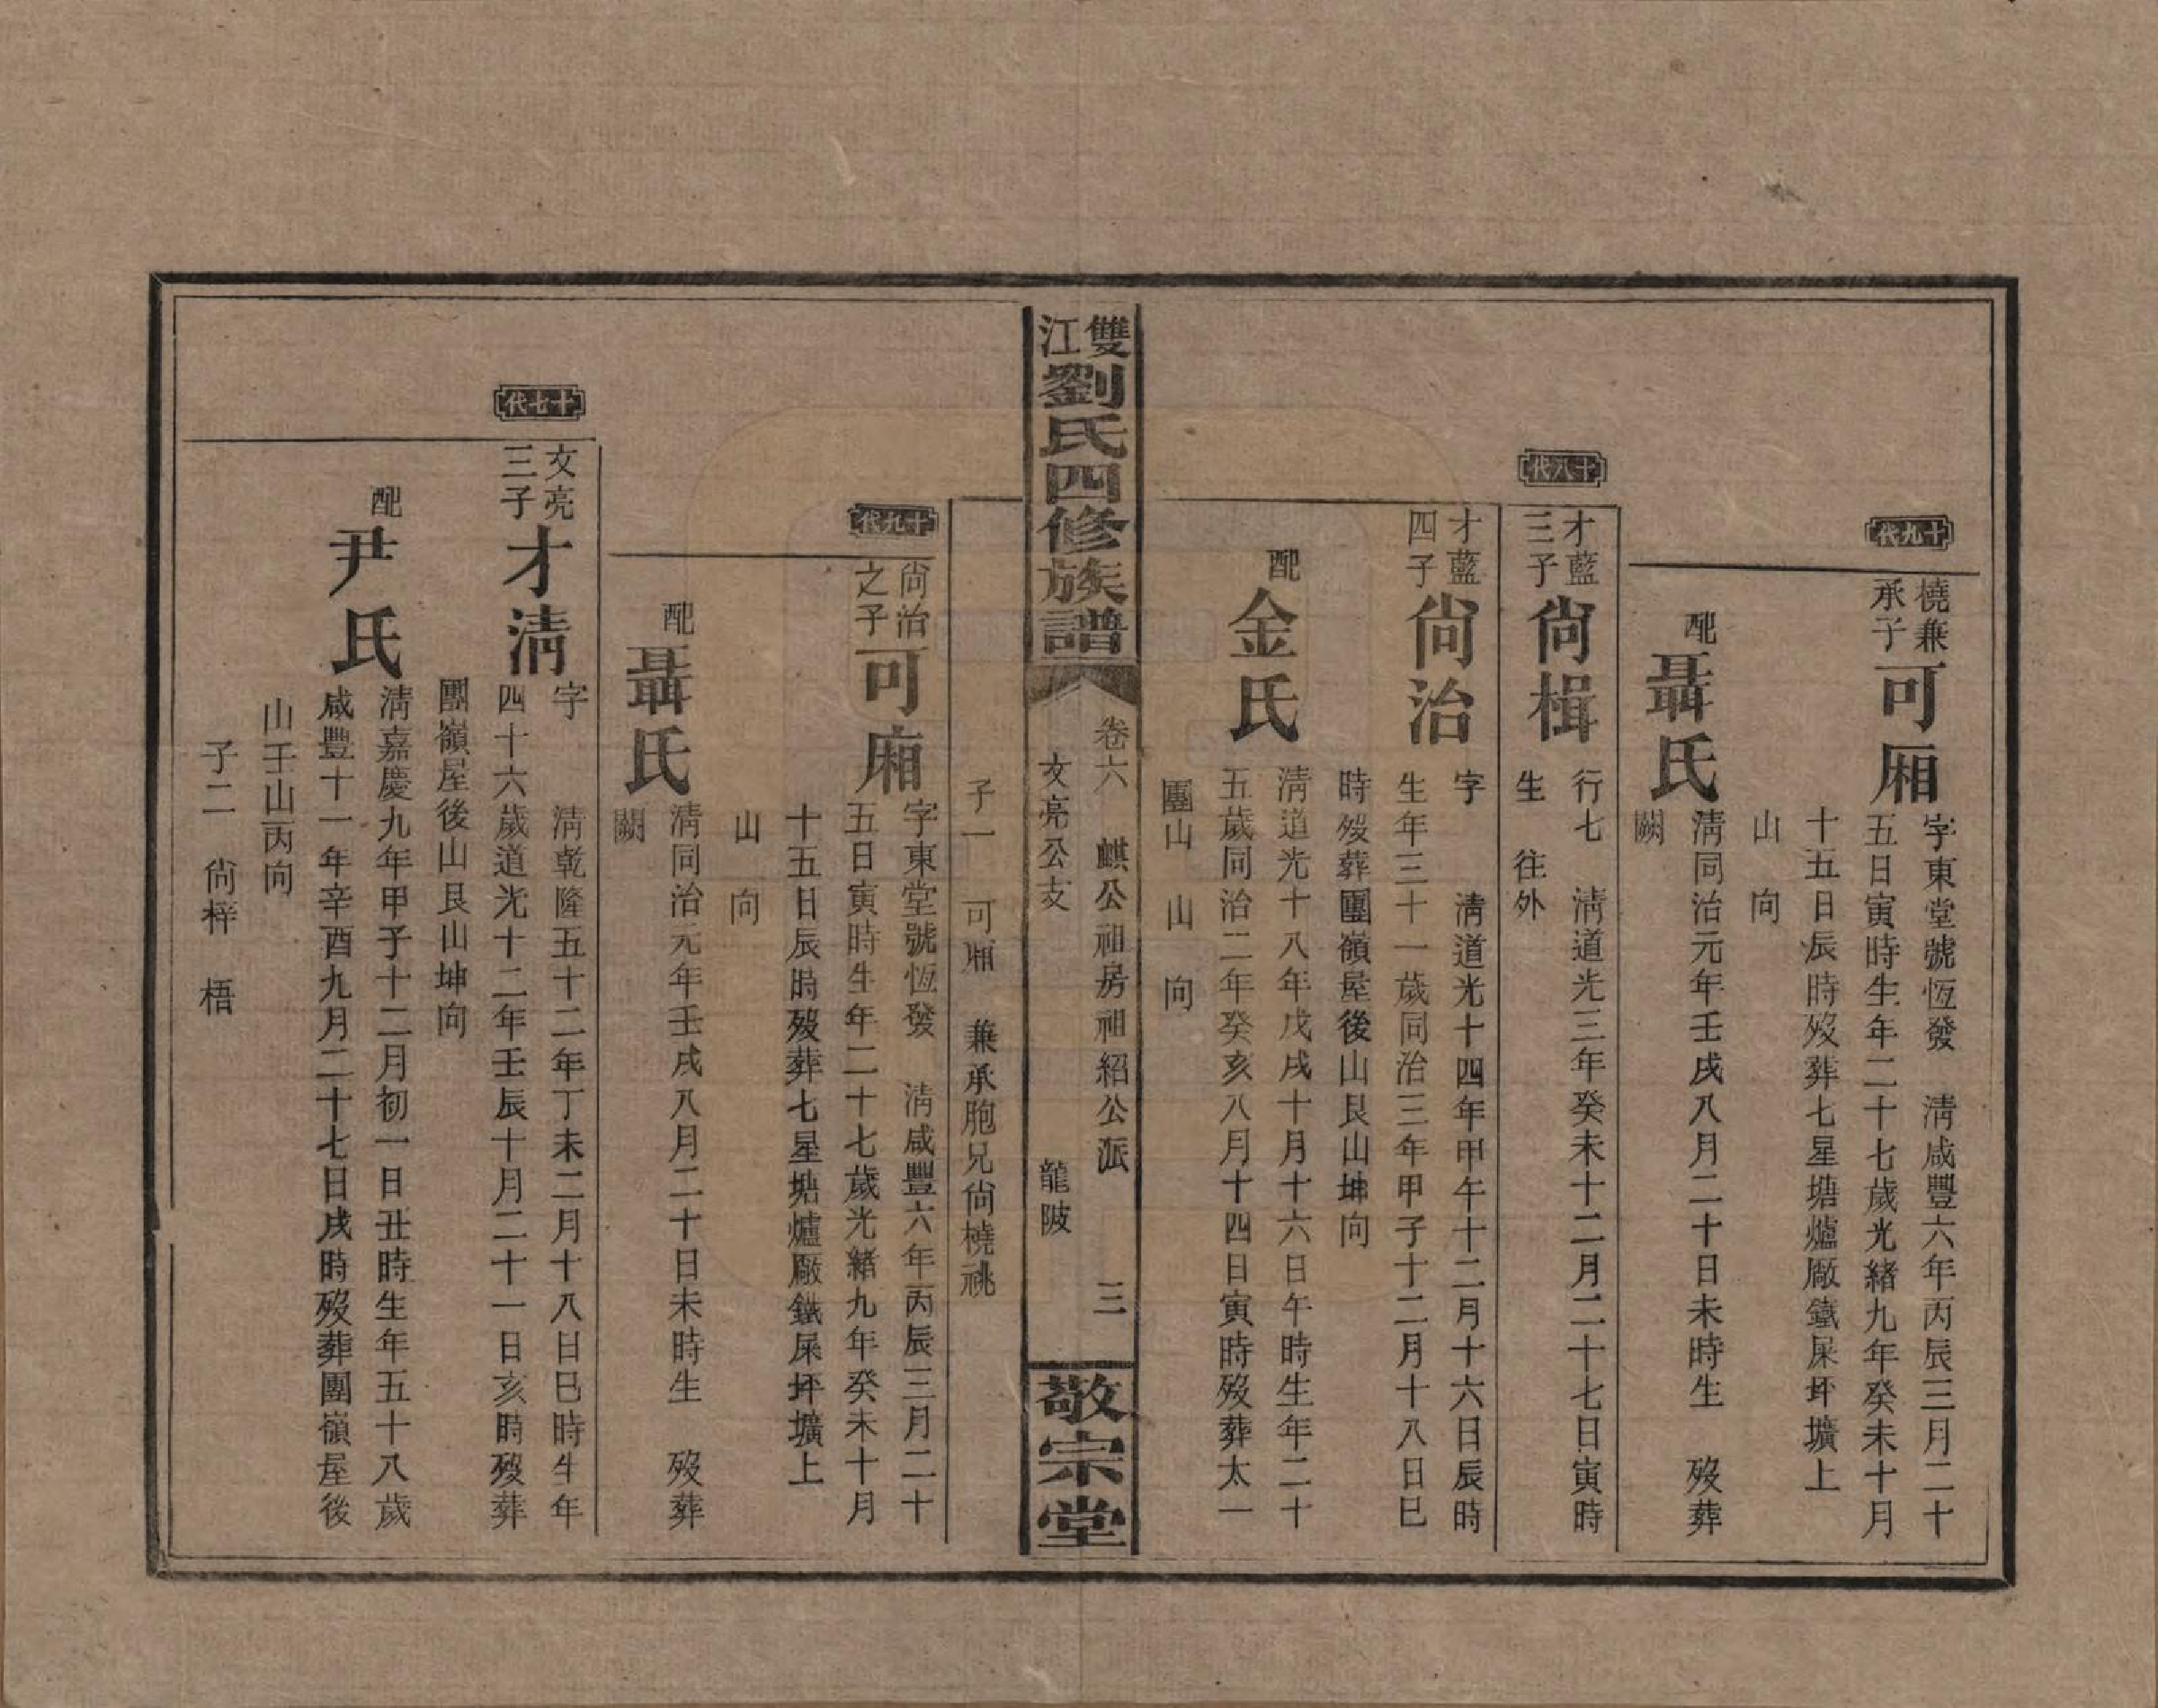 十九代
橈兼
承子
可厢
字東堂號恆發　清咸豐六年丙辰三月二十
五日寅時生年二十七歲光緒九年癸未十月
十五日辰時歿葬七星塘爐厰鐵屎坪壙上
山　向
配
聶氏
清同治元年壬戌八月二十日未時生　歿葬
闕
十八代
才藍
三子
尙楫
行七　清道光三年癸未十二月二十七日寅時
生　往外
才藍
四子
尙治
字　　清道光十四年甲午十二月十六日辰時
生年三十一歲同治三年甲子十二月十八日巳
時歿葬團嶺屋後山艮山坤向
配
金氏
清道光十八年戊戌十月十六日午時生年二十
五歲同治二年癸亥八月十四日寅時歿葬太一
團山　山　向
雙江
劉氏四修族譜
卷六　麒公祖房祖紹公派　三
文亮公支　龍陂
敬宗堂
子一　可厢　兼承胞兄尙橈祧
十九代
尙治
之子
可廂
字東堂號恆發　清咸豐六年丙辰三月二十
五日寅時生年二十七歲光緒九年癸未十月
十五日辰時歿葬七星塘爐厰鐵屎坪壙上
山　向
配
聶氏
清同治元年壬戌八月二十日未時生　歿葬
闕
十七代
文亮
三子
才清
字　　清乾隆五十二年丁未二月十八日巳時生年
四十六歲道光十二年壬辰十月二十一日亥時歿葬
團嶺屋後山艮山坤向
配
尹氏
清嘉慶九年甲子十二月初一日丑時生年五十八歲
咸豐十一年辛酉九月二十七日戌時歿葬團嶺屋後
山壬山丙向
子二　尙梓　梧